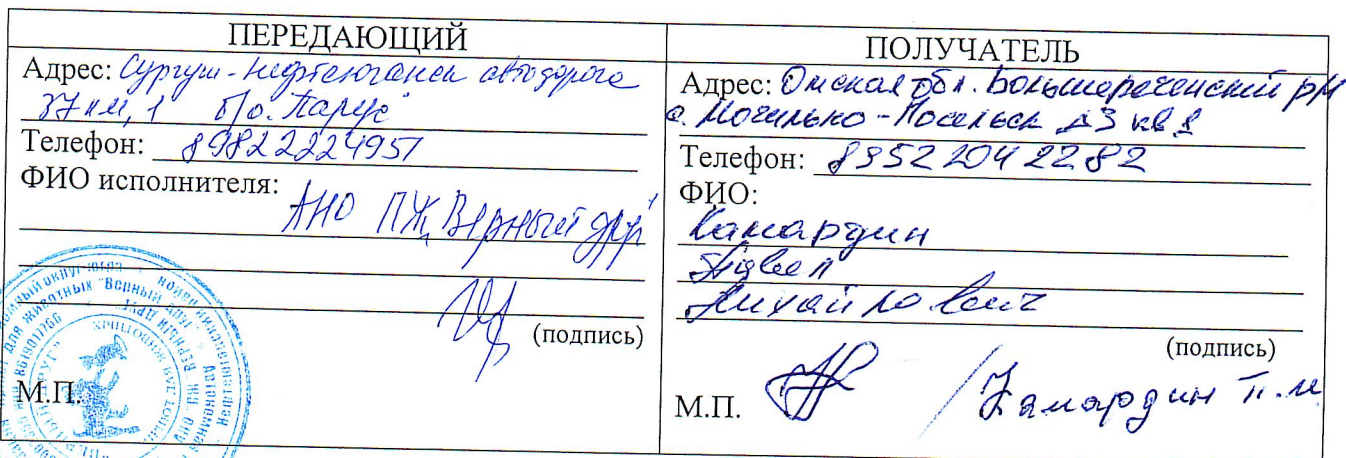 ПЕРЕДАЮЩИЙ
Адрес: Сургут-Нефтеюганск автодорога
37 км, 1 б/о. Парус
Телефон: 89822224951
ФИО исполнителя:
АНО ПЖ Верный друг
(подпись)
М.П.
ПОЛУЧАТЕЛЬ
Адрес: Омская обл. Большереченский рн
Телефон: 89522042282
ФИО:
Камардин
Павел
Михайлович
(подпись)
М.П.
/Камардин П.М